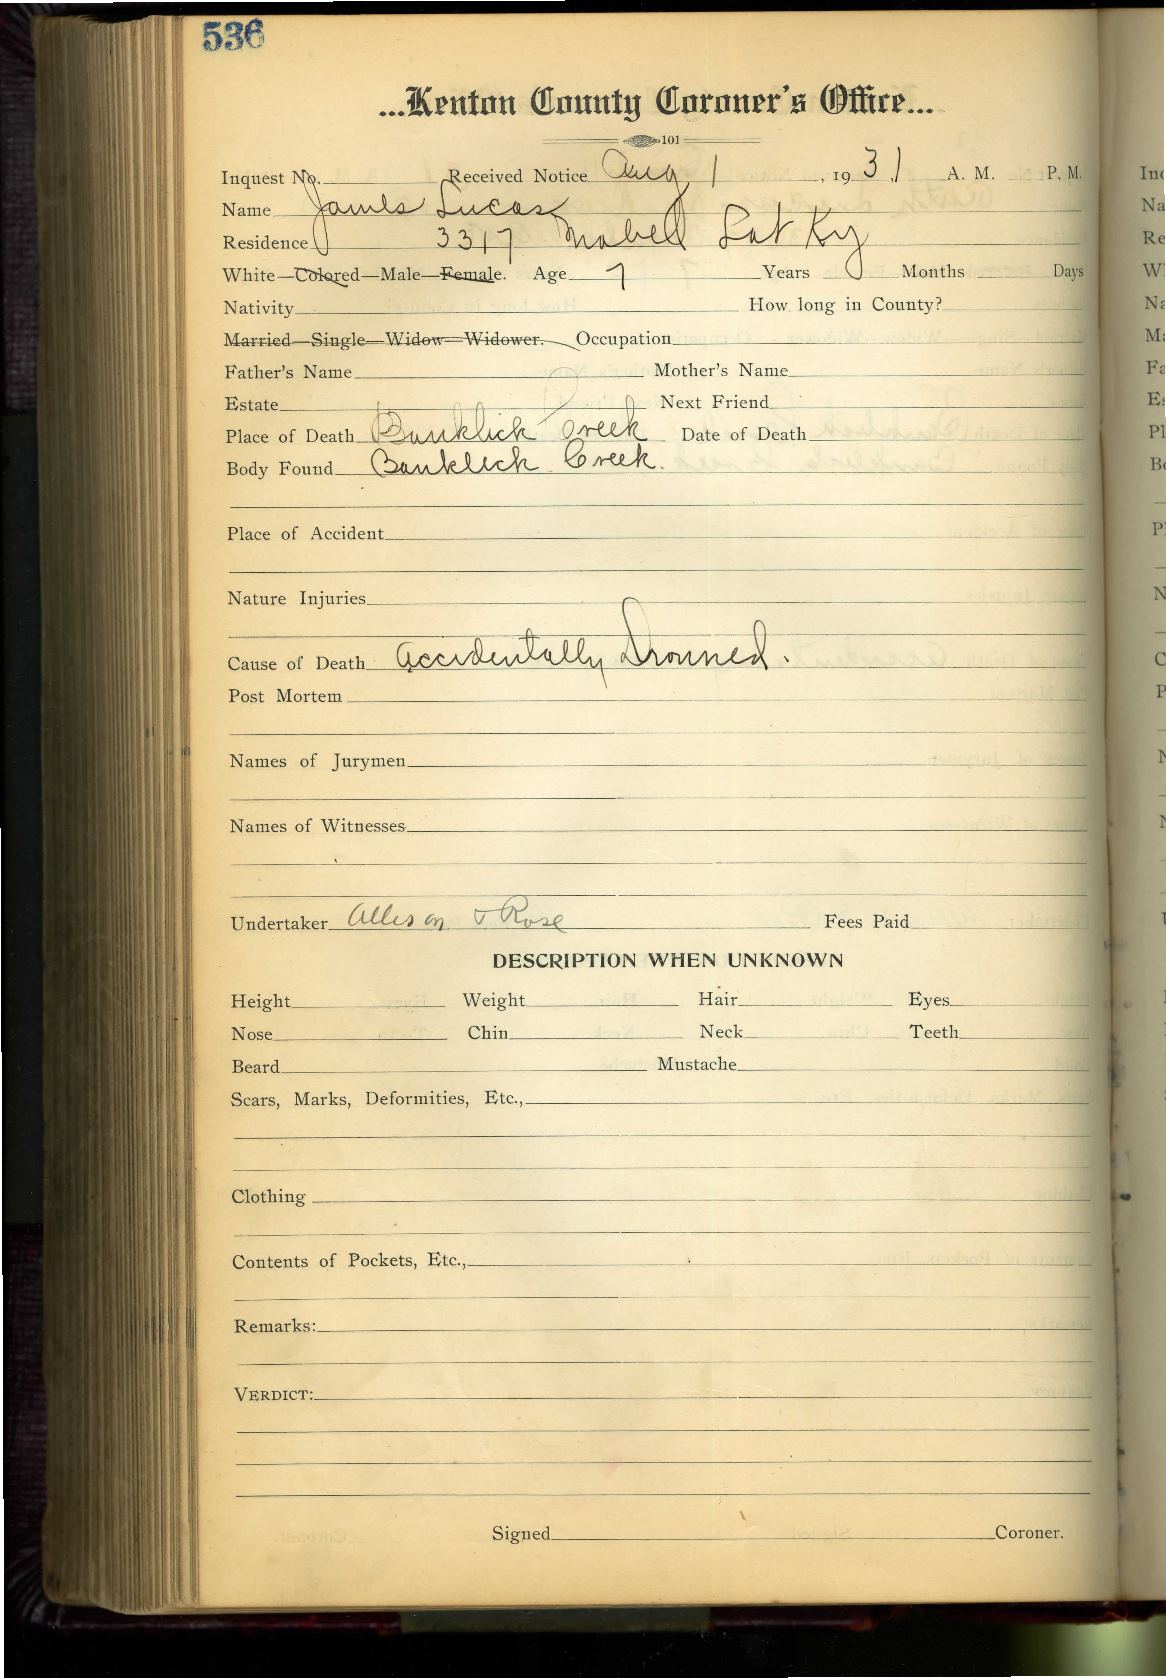 536
...Kenton County Coroner's Office...
101
Inquest No. Received Notice Aug 1, 1931 A. M. P. M.
Name James Lucas
Residence 3317 Mabell Lat Ky
White—Colored—Male—Female. Age 7 Years Months Days
Nativity How long in County?
Married—Single—Widow—Widower. Occupation
Father's Name Mother's Name
Estate Next Friend
Place of Death Banklick Creek Date of Death
Body Found Banklick Creek.
Place of Accident
Nature Injuries
Cause of Death Accidentally Drowned.
Post Mortem
Names of Jurymen
Names of Witnesses
Undertaker Allison & Rose Fees Paid
DESCRIPTION WHEN UNKNOWN
Height Weight Hair Eyes
Nose Chin Neck Teeth
Beard Mustache
Scars, Marks, Deformities, Etc.,
Clothing
Contents of Pockets, Etc.,
Remarks:
VERDICT:
Signed Coroner.